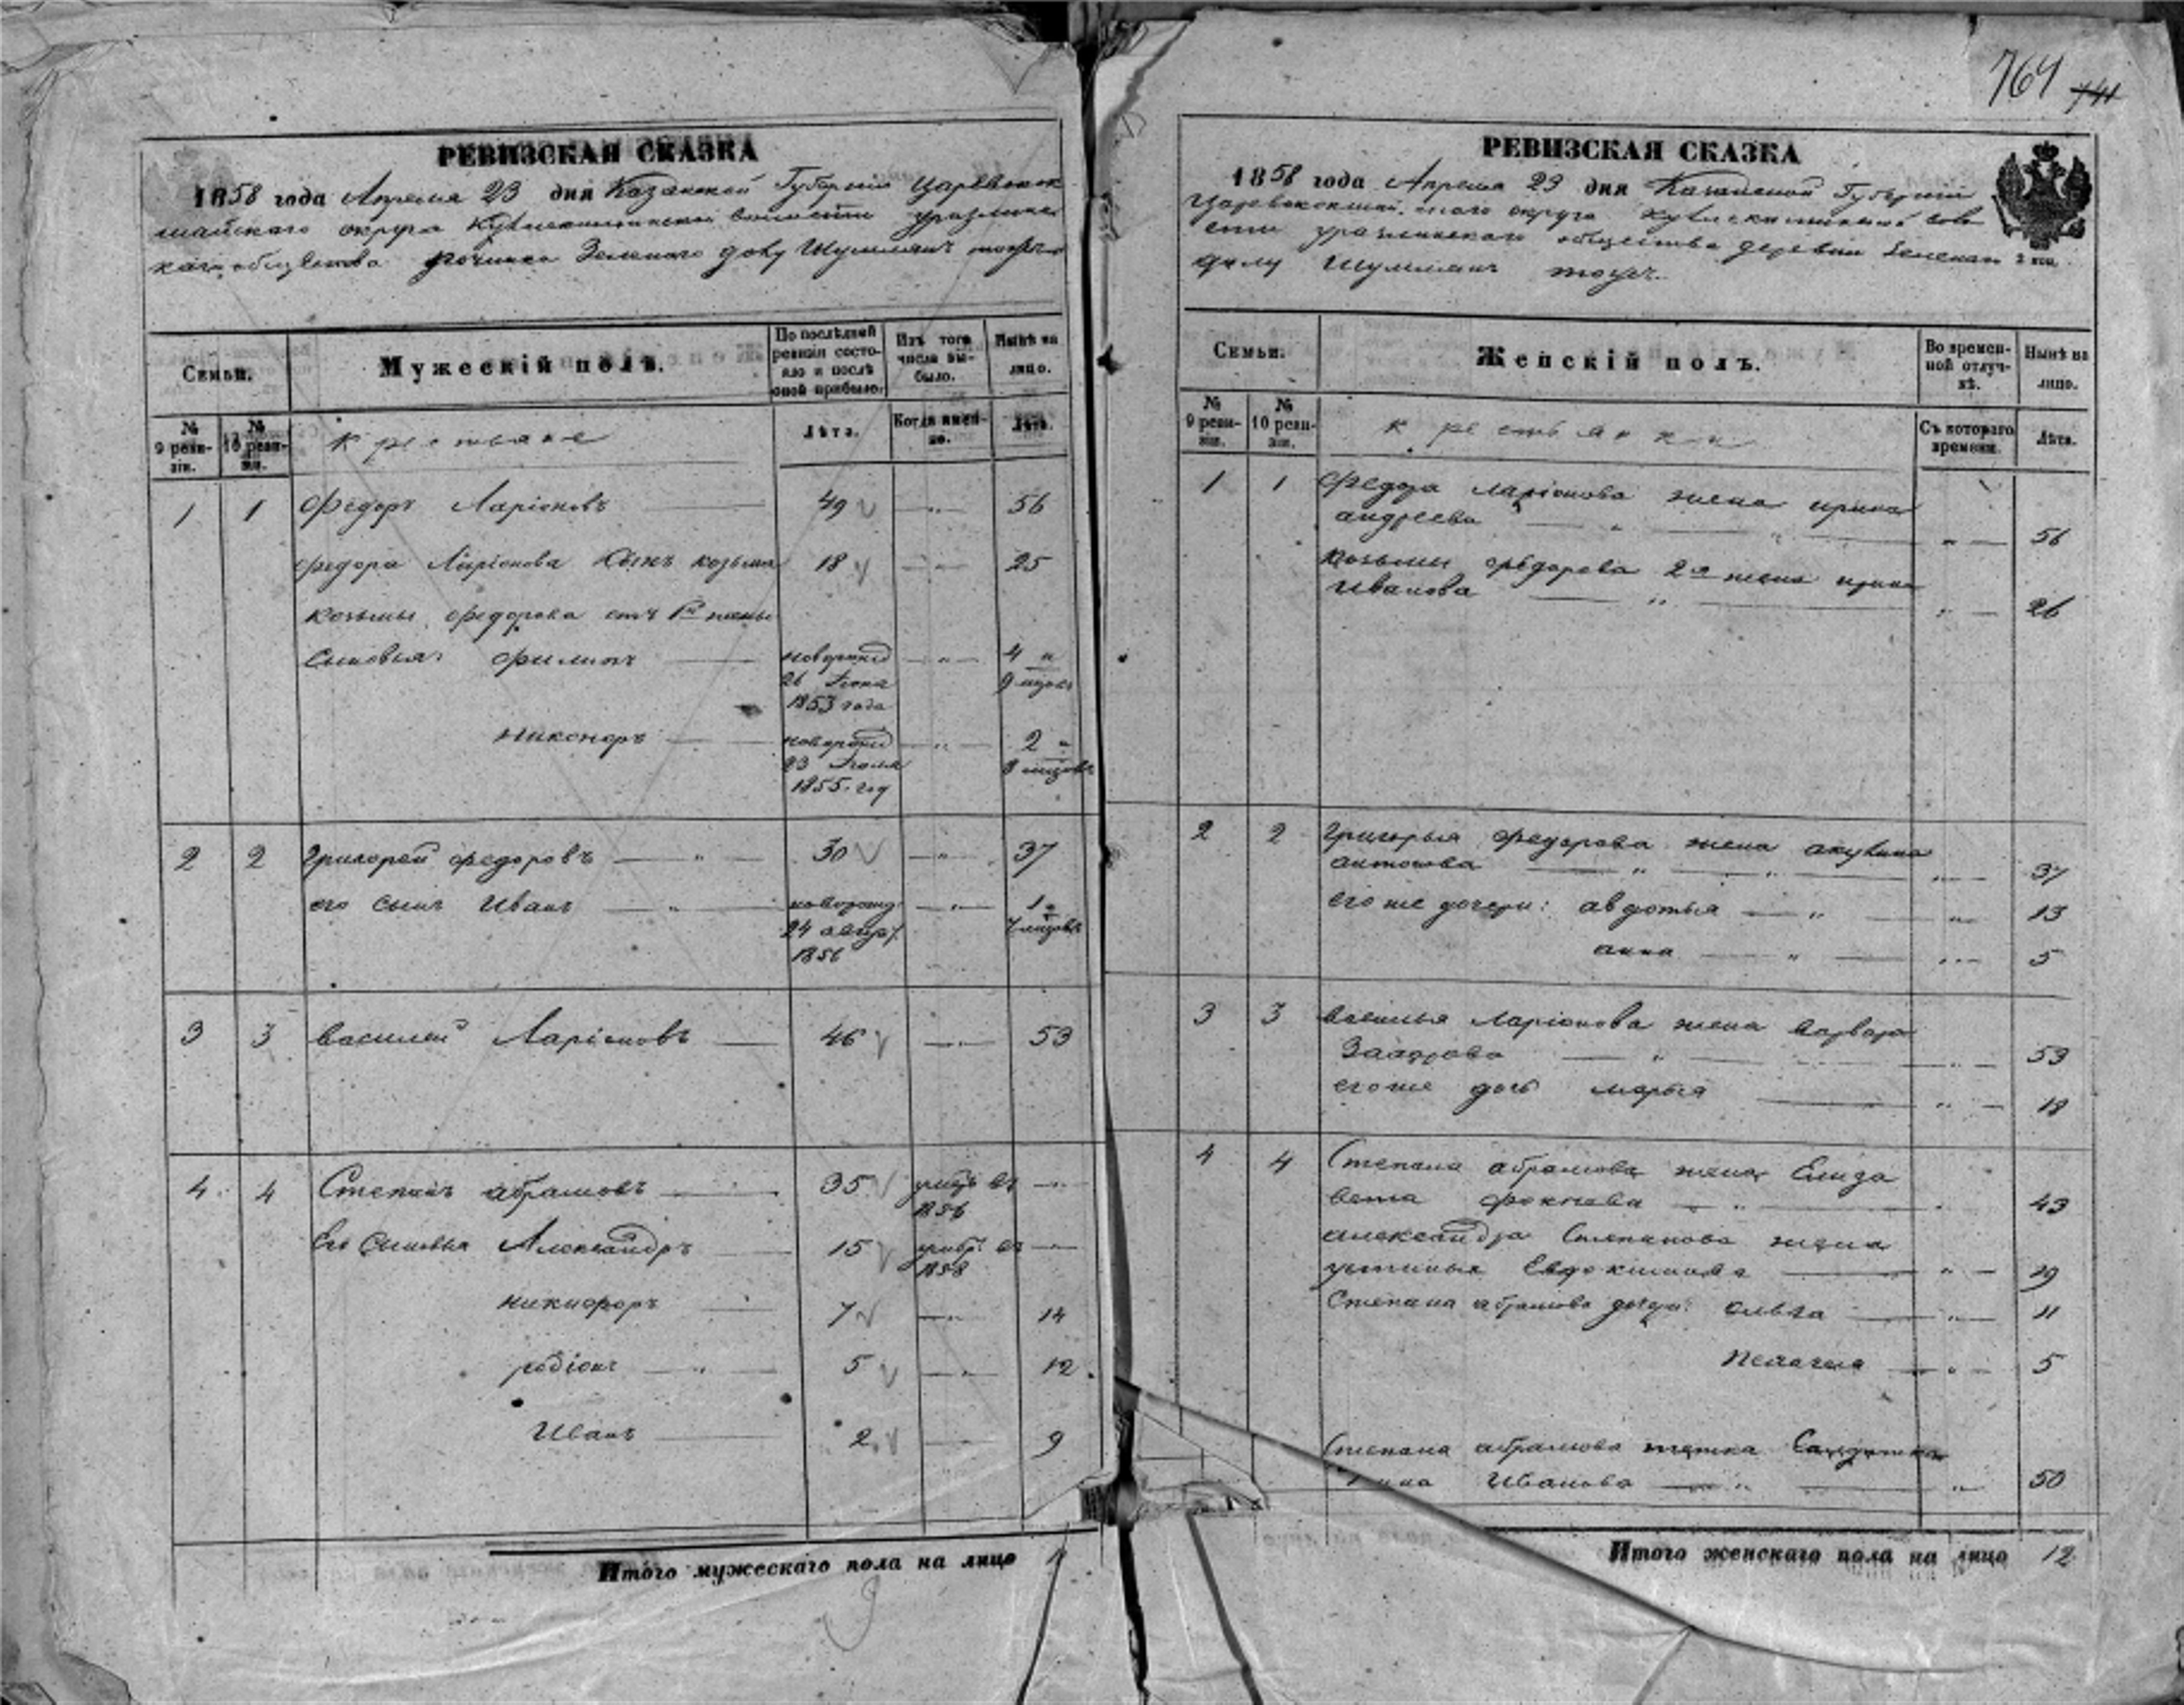 764 741
РЕВИЗСКАЯ СКАЗКА
1858 года Апреля 23 дня Казанской Губернiи Царевокок
шайскаго округа волости
каго общества починка Зеленаго Шумляич тожъ
Семьи.
Мужескій полъ.
По послѣдней ревизіи состояло и послѣ оной прибыло.
Изъ того числа выбыло.
Нынѣ на лицо.
№ 9 ревизіи.
№ 10 ревизіи.
крестьяне
Лѣта.
Когда именно.
Лѣта.
1 1 Федоръ Ларіоновъ 49 „ 56
федора Ларіонова сынъ козьма 18 „ 25
козьмы федорова отъ 1й жены
сыновья: филипъ новорожд „ 4 и
26 Iюня 9 мцовъ
1853 года
никоноръ новорожд „ 2 и
23 Iюля 8 мцовъ
1855 год
2 2 Григорей федоровъ „ 30 „ 37
его сынъ Иванъ „ новорожд. „ 1 и
24 7 мцовъ
1856
3 3 Василей Ларіоновъ 46 „ 53
4 4 Степанъ абрамовъ 35 въ „
1856
Его Сыновья Александръ 15 въ „
1858
никифоръ 7 „ 14
родіонъ „ 5 „ 12
Иванъ 2 9
Итого мужескаго пола на лицо
9
РЕВИЗСКАЯ СКАЗКА
1858 года Апреля 23 дня Казанской Губернiи
Царевококшай.скаго округа воло
сти общества деревни
Шумляич тожъ
Семьи.
Женскій полъ.
Во временной отлучкѣ.
Нынѣ на лицо.
№ 9 ревизіи.
№ 10 ревизіи.
крестьянки
Съ котораго времени.
Лѣта.
1 1 Федора ларіонова жена ирина
андреева „ „ „ 56
козьмы федорова 2я жена ирина
Иванова „ „ 26
2 2 Григорья федорова жена акулина
антонова „ „ „ 37
его же дочери: авдотья „ „ 13
анна „ „ 5
3 3 василья ларіонова жена варвара
„ „ 53
его же дочь марья „ 18
4 4 Степана абрамова жена Елиза
вета „ „ 43
александра Степанова жена
устинья Евдокимова „ 29
Степана абрамова дочери: ольга „ 11
пелагея „ 5
Степана абрамова тетка
Иванова „ „ 50
Итого женскаго пола на лицо 12